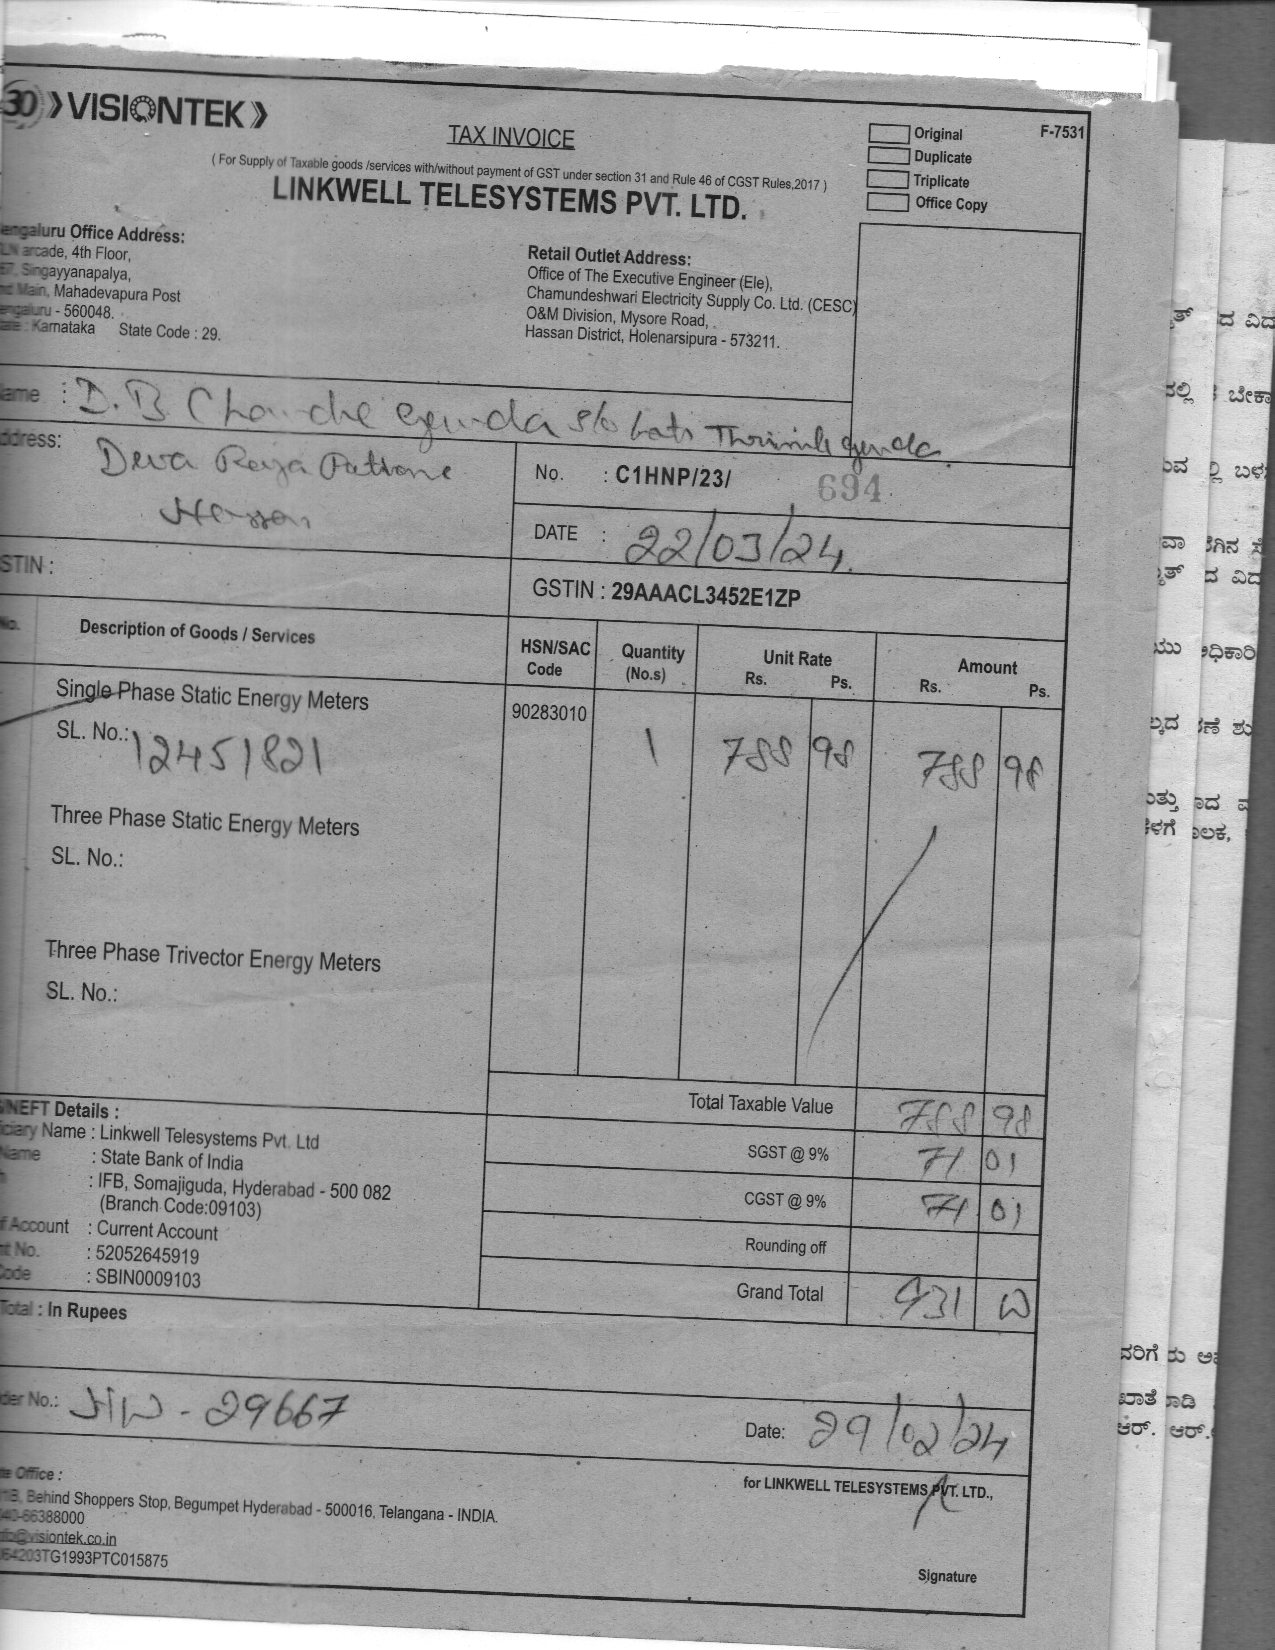 30 VISIONTEK
TAX INVOICE
( For Supply of Taxable goods /services with/without payment of GST under section 31 and Rule 46 of CGST Rules,2017 )
LINKWELL TELESYSTEMS PVT. LTD.
Original
Duplicate
Triplicate
Office Copy
F-7531
engaluru Office Address:
arcade, 4th Floor,
Singayyanapalya,
Main, Mahadevapura Post
engaluru - 560048.
Karnataka State Code : 29.
Retail Outlet Address:
Office of The Executive Engineer (Ele),
Chamundeshwari Electricity Supply Co. Ltd. (CESC)
O&M Division, Mysore Road,
Hassan District, Holenarsipura - 573211.
ame : D. B Chandre gowda s/o Late Thimmegowda
ddress: Deva Raya Pattane
Hassan
No. : C1HNP/23/ 694
DATE : 22/03/24.
STIN :
GSTIN : 29AAACL3452E1ZP
No. Description of Goods / Services HSN/SAC Code Quantity (No.s) Unit Rate Rs. Ps. Amount Rs. Ps.
Single Phase Static Energy Meters 90283010
SL. No.: 12451821 1 788 98 788 98
Three Phase Static Energy Meters
SL. No.:
Three Phase Trivector Energy Meters
SL. No.:
Total Taxable Value 788 98
SGST @ 9% 71 01
CGST @ 9% 71 01
Rounding off
Grand Total 931 00
/NEFT Details :
iciary Name : Linkwell Telesystems Pvt. Ltd
Name : State Bank of India
: IFB, Somajiguda, Hyderabad - 500 082
(Branch Code:09103)
f Account : Current Account
nt No. : 52052645919
Code : SBIN0009103
Total : In Rupees
der No.: - 29667
Date: 29/02/24
for LINKWELL TELESYSTEMS PVT. LTD.,
Signature
te Office :
Behind Shoppers Stop, Begumpet Hyderabad - 500016, Telangana - INDIA.
040-66388000
info@visiontek.co.in
64203TG1993PTC015875
ದ ವಿದ
ಬೇಕಾ
ಬಳ
ದ ವಿದ
ಅಧಿಕಾರಿ
ದರಿಗೆ
ಖಾತೆ
ಆರ್. ಆರ್.